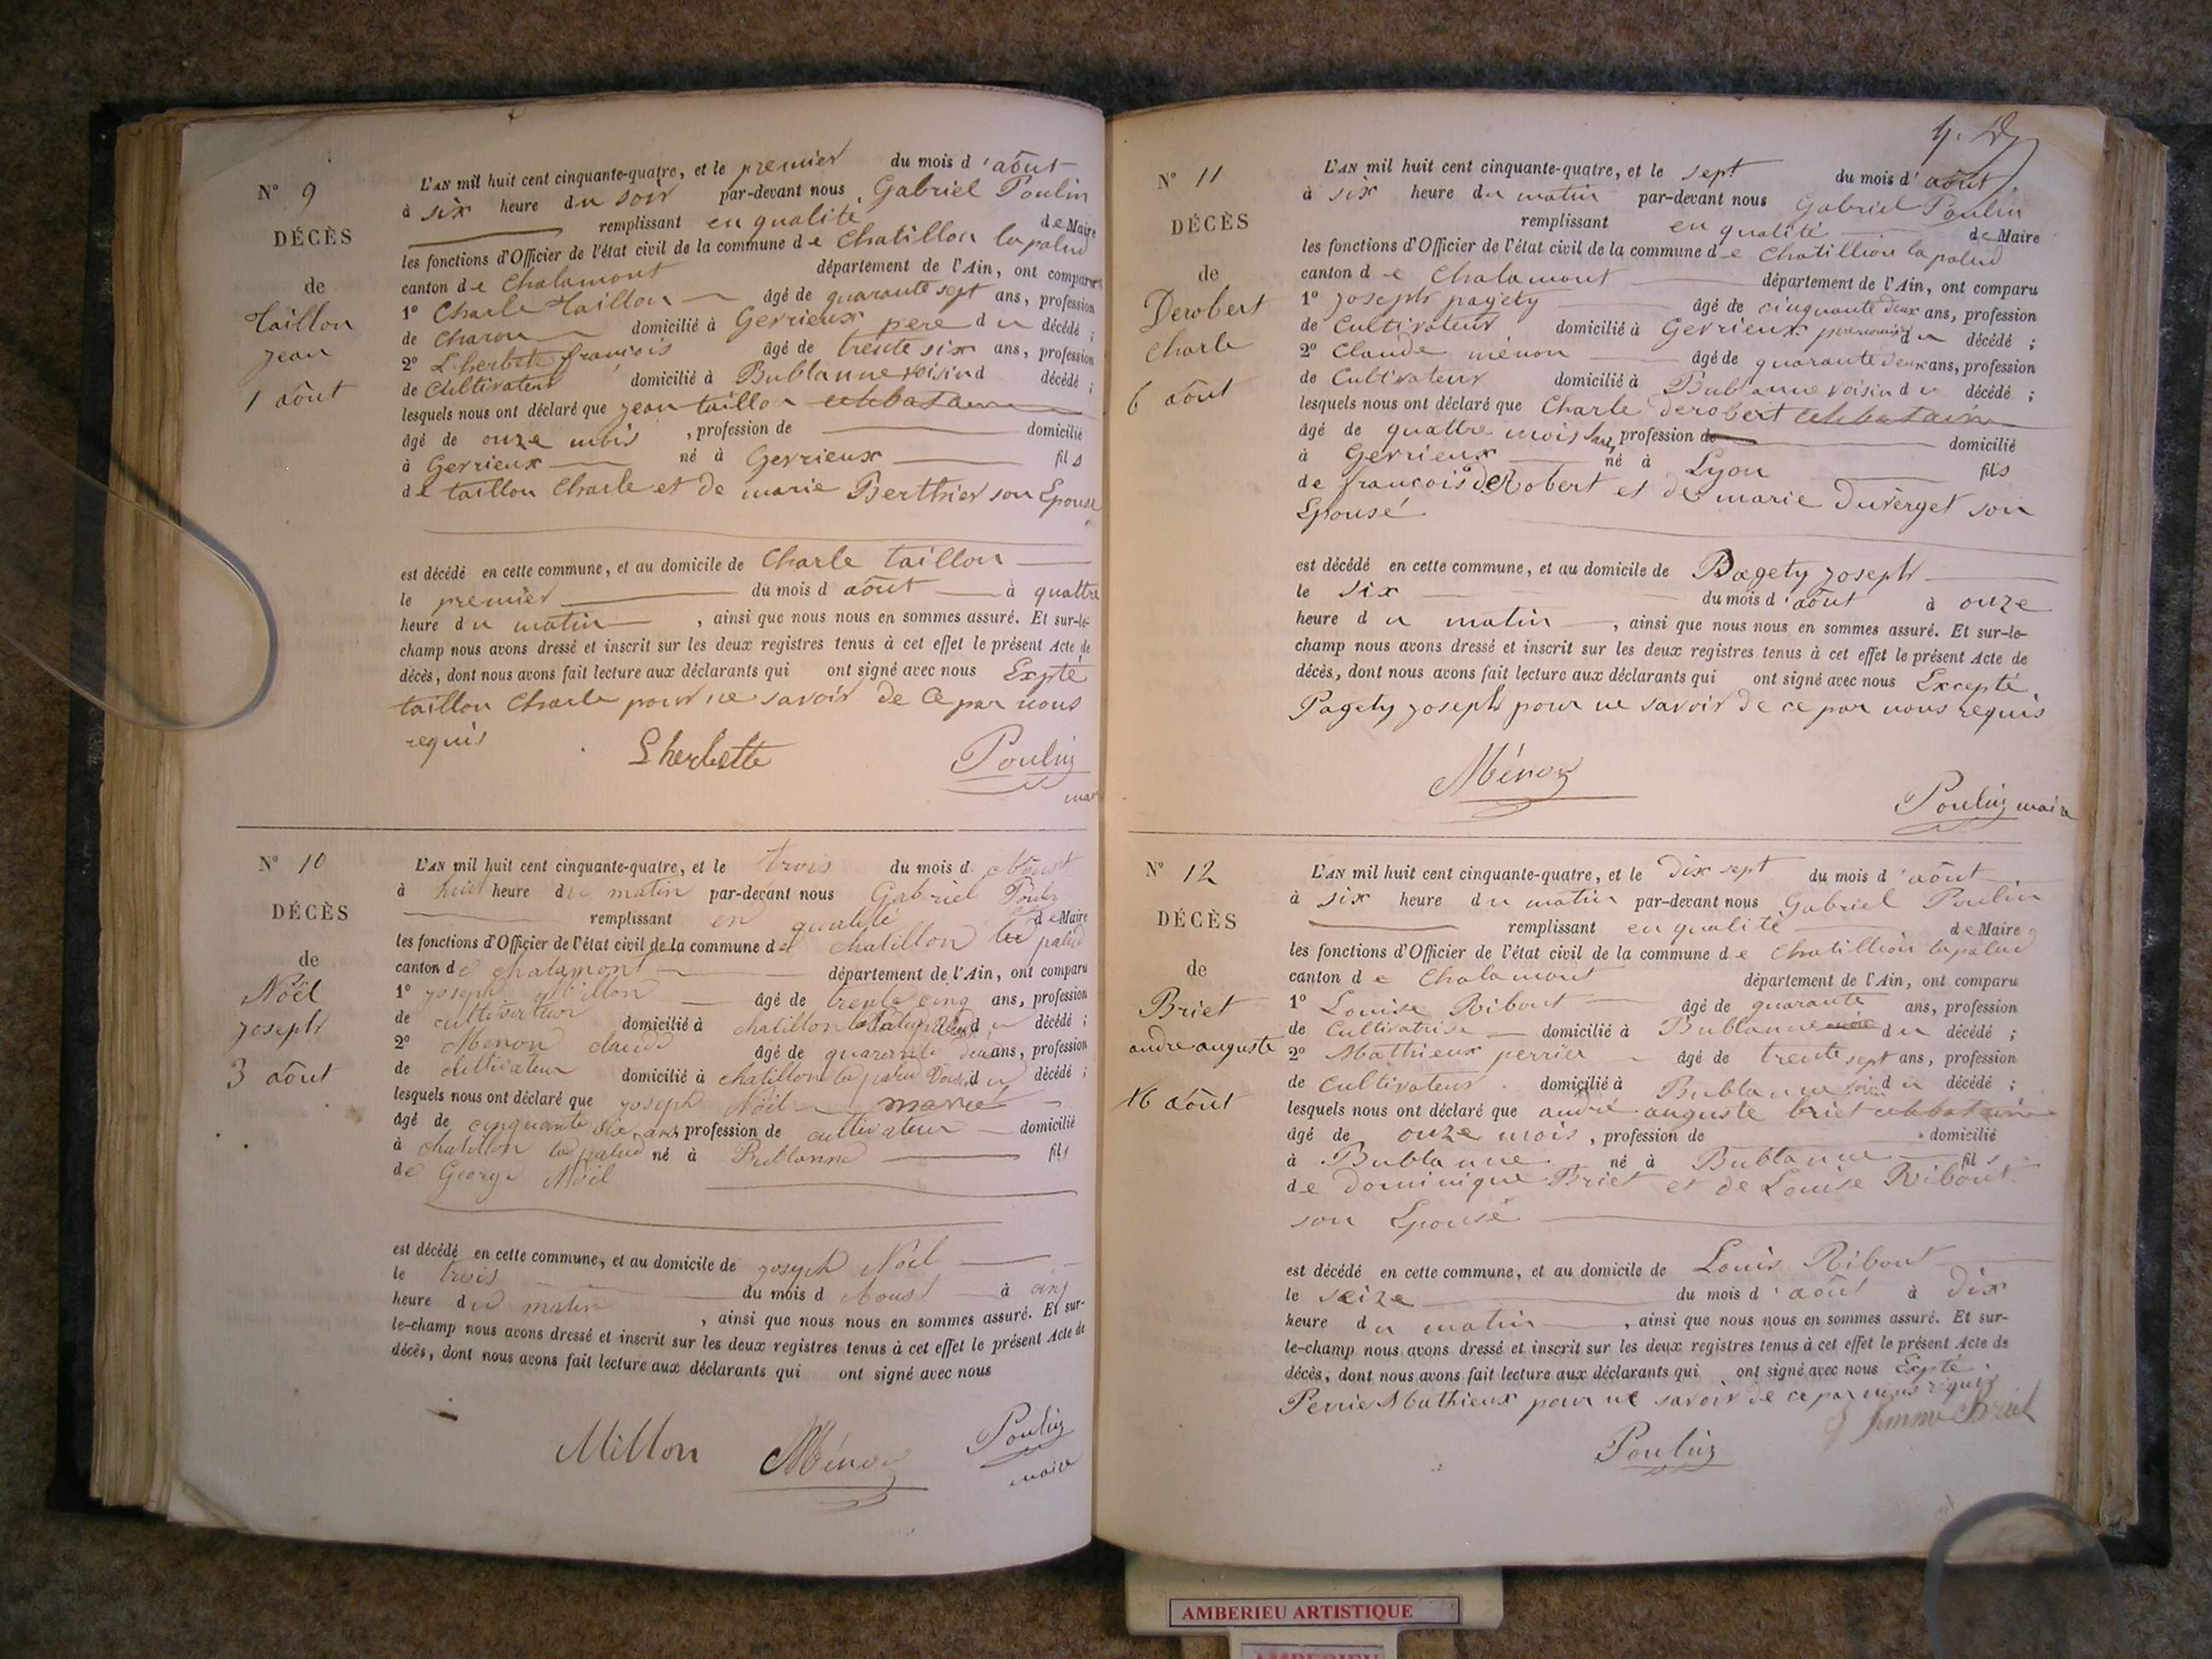 N° 9
DÉCÈS
de
Taillon
jean
1 aôut
L'AN mil huit cent cinquante-quatre, et le premier du mois d'aôut
à six heure du soir par-devant nous Gabriel Poulin
remplissant en qualité de Maire
les fonctions d'Officier de l'état civil de la commune de Chatillon la palud
canton de Chalamont département de l'Ain, ont comparu
1° Charle taillon âgé de quarante sept ans, profession
de Charon domicilié à Gevrieux pere du décédé ;
2° Lherbete françois âgé de trente six ans, profession
de Cultivateur domicilié à Bublanne voisin d décédé ;
lesquels nous ont déclaré que jean taillon
âgé de onze mois , profession de domicilié
à Gevrieux né à Gevrieux fils
de taillon Charle et de marie Berthier son Epouse
est décédé en cette commune, et au domicile de Charle taillon
le premier du mois d aôut à quattre
heure du matin , ainsi que nous nous en sommes assuré. Et sur-le-
champ nous avons dressé et inscrit sur les deux registres tenus à cet effet le présent Acte de
décès, dont nous avons fait lecture aux déclarants qui ont signé avec nous Expté
taillon Charle pour ne savoir de Ce par nous
requis
Lherbette Poulin
mai
N° 10
DÉCÈS
de
Noël
joseph
3 aôut
L'AN mil huit cent cinquante-quatre, et le trois du mois d Aoust
à huit heure du matin par-devant nous Gabriel Poulin
remplissant en qualité de Maire
les fonctions d'Officier de l'état civil de la commune de chatillon la palud
canton de chalamont département de l'Ain, ont comparu
1° joseph Millon âgé de trente cinq ans, profession
de cultivateur domicilié à chatillon la Palud décédé ;
2° Menon claude âgé de quarante deux ans, profession
de cultivateur domicilié à chatillon la palud voisin du décédé ;
lesquels nous ont déclaré que joseph Nöel marié
âgé de cinquante six ans profession de cultivateur domicilié
à chatillon la palud né à Bublanne fils
de George Nöel
est décédé en cette commune, et au domicile de joseph Noel
le trois du mois d Aoust à cinq
heure du matin , ainsi que nous nous en sommes assuré. Et sur-
le-champ nous avons dressé et inscrit sur les deux registres tenus à cet effet le présent Acte de
décès, dont nous avons fait lecture aux déclarants qui ont signé avec nous
Millon Ménon Poulin
maire
N° 11
DÉCÈS
de
Derobert
Charle
6 aôut
L'AN mil huit cent cinquante-quatre, et le sept du mois d'aôut
à six heure du matin par-devant nous Gabriel Poulin
remplissant en qualité de Maire
les fonctions d'Officier de l'état civil de la commune de Chatillion la palud
canton de Chalamont département de l'Ain, ont comparu
1° joseph pagety âgé de cinquante deux ans, profession
de Cultivateur domicilié à Gevrieux du décédé ;
2° Claude ménon âgé de quarante deux ans, profession
de Cultivateur domicilié à Bublanne voisin du décédé ;
lesquels nous ont déclaré que Charle derobert
âgé de quattre mois sans profession de domicilié
à Gevrieux né à Lyon fils
de francois deRobert et de marie Duverget son
Epouse
est décédé en cette commune, et au domicile de Pagety joseph
le six du mois d'aôut à onze
heure du matin , ainsi que nous nous en sommes assuré. Et sur-le-
champ nous avons dressé et inscrit sur les deux registres tenus à cet effet le présent Acte de
décès, dont nous avons fait lecture aux déclarants qui ont signé avec nous Excepté
Pagety joseph pour ne savoir de ce par nous requis
Ménon
Poulin maire
N° 12
DÉCÈS
de
Briet
andre auguste
16 aôut
L'AN mil huit cent cinquante-quatre, et le Dix sept du mois d'aôut
à six heure du matin par-devant nous Gabriel Poulin
remplissant en qualité de Maire
les fonctions d'Officier de l'état civil de la commune de Chatillion la palud
canton de Chalamont département de l'Ain, ont comparu
1° Louise Ribout âgé de quarante ans, profession
de Cultivatrise domicilié à Bublanne du décédé ;
2° Mathieux perrier âgé de trente sept ans, profession
de Cultivateur domicilié à Bublanne voisin du décédé ;
lesquels nous ont déclaré que andré auguste briet celibataire
âgé de onze mois , profession de domicilié
à Bublanne né à Bublanne fils
de dominique Briet et de Louise Ribout
son Epouse
est décédé en cette commune, et au domicile de Louis Ribout
le seize du mois d'aôut à dix
heure du matin , ainsi que nous nous en sommes assuré. Et sur-
le-champ nous avons dressé et inscrit sur les deux registres tenus à cet effet le présent Acte de
décès, dont nous avons fait lecture aux déclarants qui ont signé avec nous Expté
Perrie Mathieux pour ne savoir de ce par nous requis
femme Briet
Poulin
AMBERIEU ARTISTIQUE
AMBERIEU